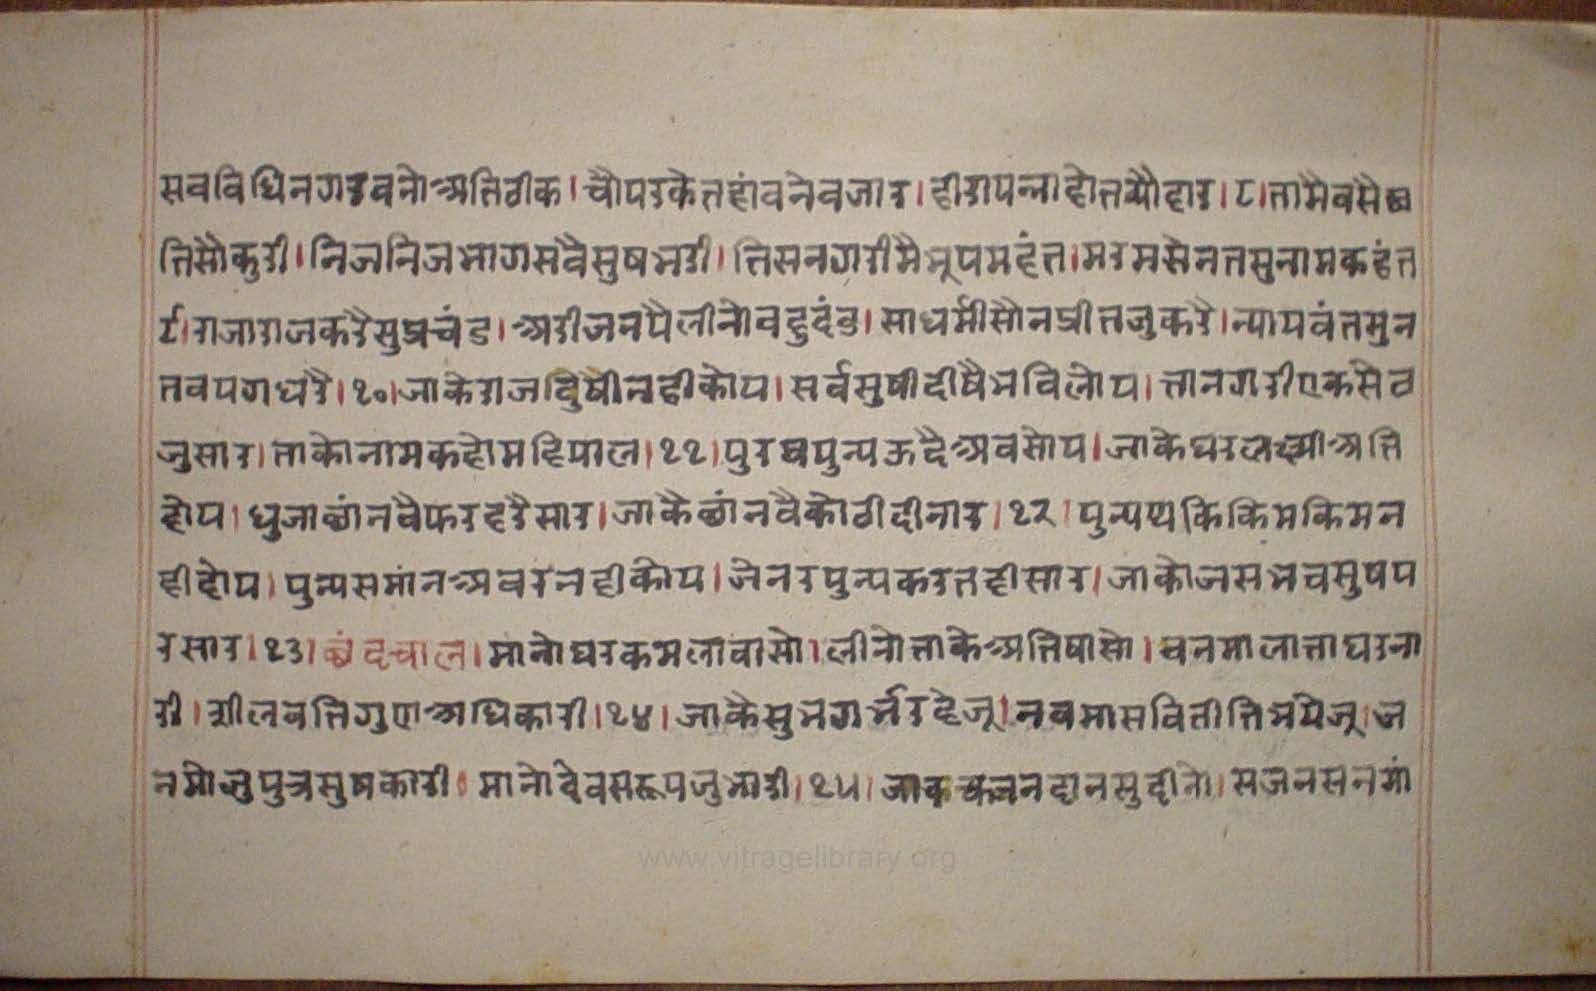 सवविधिनगरवनोअतिठीक।चौपरकेतहांवनेवजार।हीरापन्नाहोतव्यौहार।८।तामैवसै
तिसौकुरी।निजनिजभागसवैसुषभरी।तिसनगरीमैभूपमहंत।मरमसेनतसुनामकहंत
९।राजाराजकरैसुप्रचंड।अरीजनपैलीनोवहुदंड।साधर्मीसौनप्रीतजुकरै।न्यायवंतमुन
तवपगधरै।१०।जाकेराजदुषीनहीकोय।सर्वसुषीदीषैभविलोय।तानगरीएकसेठ
जुसार।ताकोनामकहोमहिपाल।११।पुरवपुन्यऊदैअवसोय।जाकेघरलक्ष्मीअति
होय।धुजाछांनवैफरहरैसार।जाकैछांनवैकोठीदीनार।१२।पुन्यथकिकिमकिमन
हीहोय।पुन्यसमांनअवरनहीकोय।जेनरपुन्यकरतहीसार।जाकोजसभवसुषप
रसार।१३।छंदचाल।मानोघरकमलावासो।लीनोताकेअतिषासो।वनमालाताघरना
री।शीलवतिगुणअधिकारी।१४।जाकैसुभगर्भरहेजू।नवमासवितीतिभयेजू।ज
नमोजुपुत्रसुषकारी।मानोदेवसरूपजुभारी।१५।जाचकजनदानसुदीनो।सजनसनमां
www.vitragelibrary.org